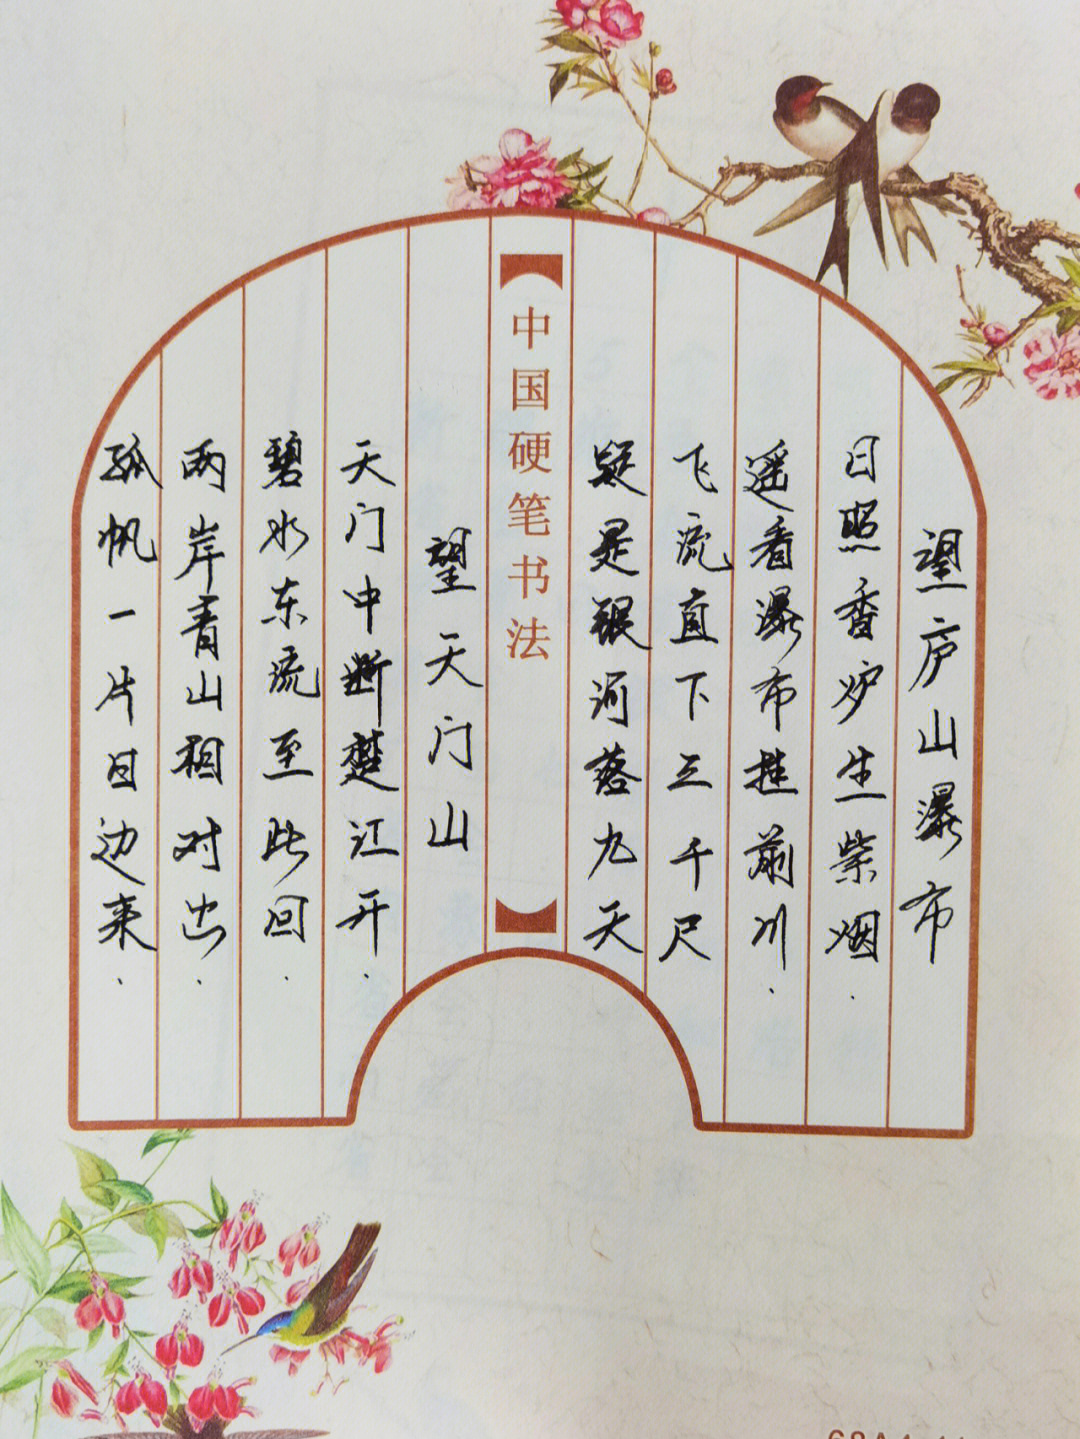 望庐山瀑布
日照香炉生紫烟.
遥看瀑布挂前川.
飞流直下三千尺
疑是银河落九天
中国硬笔书法
望天门山
天门中断楚江开.
碧水东流至此回.
两岸青山相对出.
孤帆一片日边来.